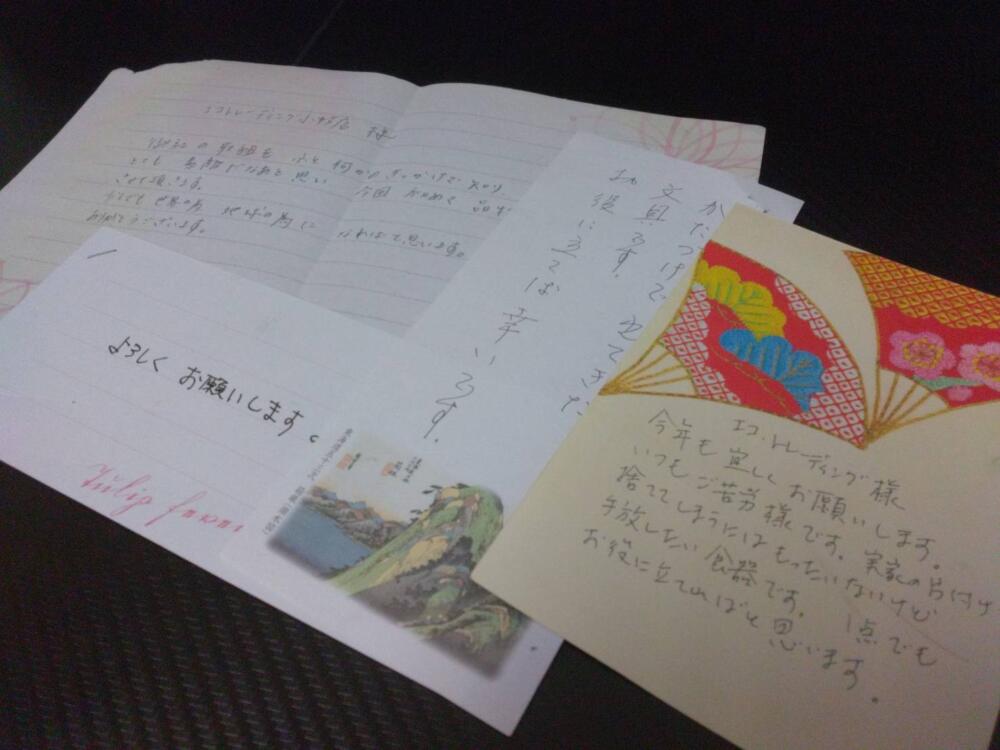 エコトレーディング小牧店 様
御社の取組を ふと何かのきっかけで知り
とても素敵だなあと思い 今回
させて頂きます。
少しでも世界の為 地球の為に なればと思います。
ありがとうございます。
よろしく お願いします。
かたづけで 出てきた
文具です。
お役に立てば幸いです。
エコ.トレーディング様
今年も宜しくお願いします。
いつもご苦労様です。実家の片付け
捨ててしまうにはもったいないけど
手放したい食器です。1点でも
お役に立てればと思います。